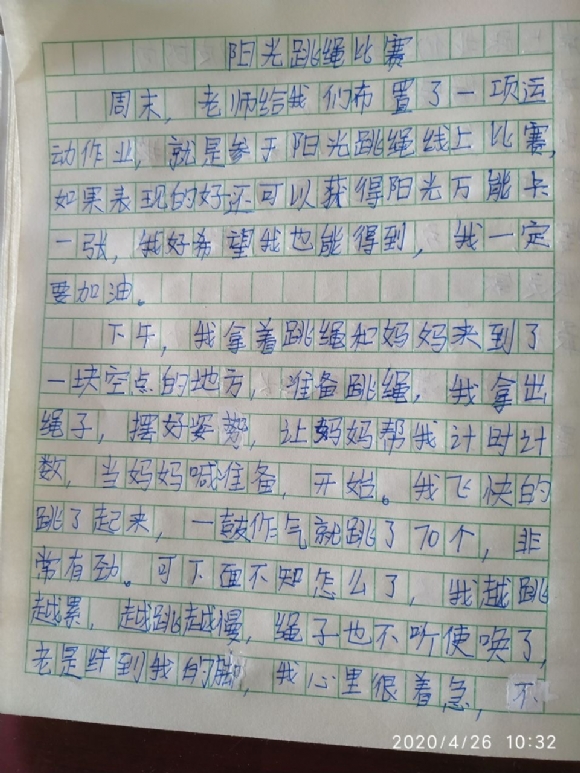 阳光跳绳比赛
周末，老师给我们布置了一项运
动作业，就是参于阳光跳绳线上比赛，
如果表现的好还可以获得阳光万能卡
一张，我好希望我也能得到，我一定
要加油。
下午，我拿着跳绳和妈妈来到了
一块空点的地方，准备跳绳，我拿出
绳子，摆好姿势，让妈妈帮我计时计
数，当妈妈喊准备，开始。我飞快的
跳了起来，一鼓作气就跳了70个，非
常有劲。可下面不知怎么了，我越跳
越累，越跳越慢，绳子也不听使唤了，
老是绊到我的脚，我心里很着急，不
2020/4/26 10:32